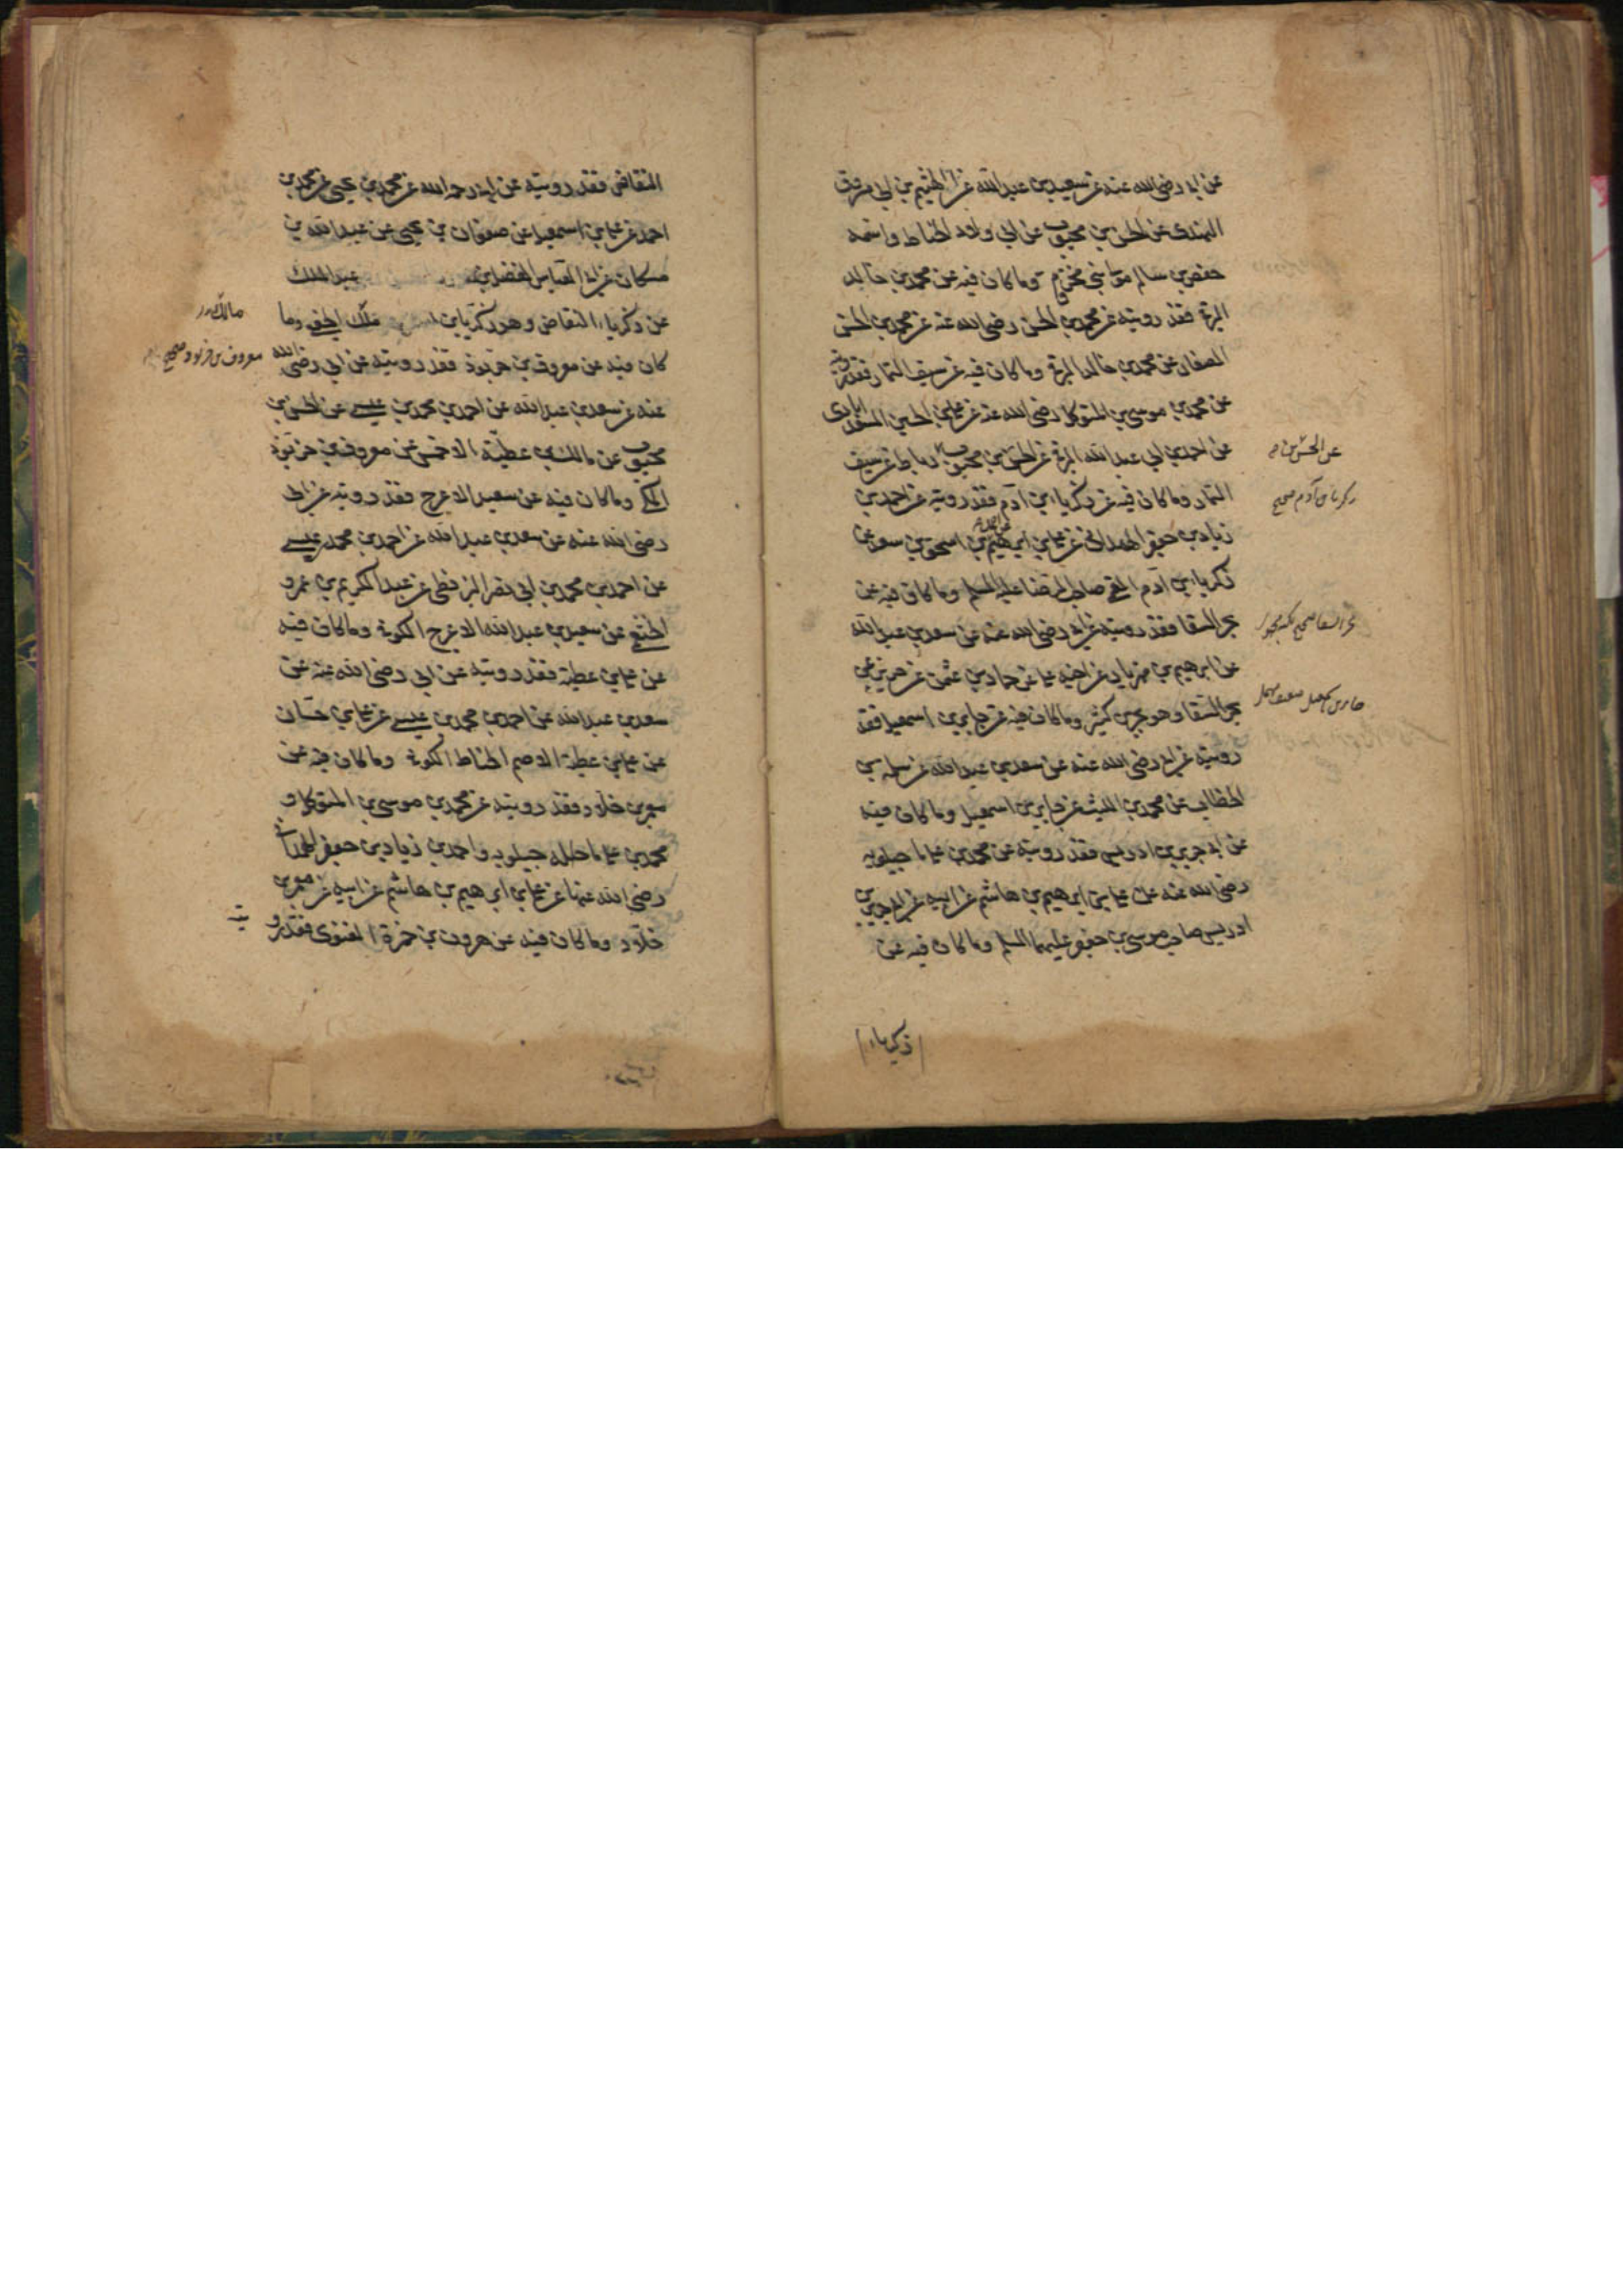 عن ابي رضي الله عنه عن سعد بن عبد الله عن الهيثم بن ابي مسروق
النهدي عن الحسن بن محبوب عن ابي ولاد الحناط واسمه
حفص بن سالم مولى بني مخزوم وما كان فيه عن محمد بن خالد
البرقي فقد رويته عن محمد بن الحسن رضي الله عنه عن محمد بن الحسن
الصفار عن محمد بن خالد البرقي وما كان فيه عن سيف التمار فقد رويته
عن محمد بن موسى بن المتوكل رضي الله عنه عن علي بن الحسين السعدابادي
عن احمد بن ابي عبد الله البرقي عن الحسن بن محبوب عن رباط عن سيف
التمار وما كان فيه عن زكرياء بن آدم فقد رويته عن احمد بن
زياد بن جعفر الهمداني عن علي بن ابرهيم بن اسحق بن سعد عن
زكرياء بن آدم القمي صاحب الرضا عليه السلم وما كان فيه عن
بحر السقا فقد رويته عن ابي رضي الله عنه عن سعد بن عبد الله
عن ابرهيم بن مهزيار عن اخيه علي عن حماد بن عثمن عن حريز عن
بحر السقا وهو بحر بن كثير وما كان فيه عن جابر بن اسمعيل فقد
رويته عن ابي رضي الله عنه عن سعد بن عبد الله عن سلمة بن
الخطاب عن محمد بن الليث عن جابر بن اسمعيل وما كان فيه
عن ابي جرير بن ادريس فقد رويته عن محمد بن علي ماجيلويه
رضي الله عنه عن علي بن ابرهيم بن هاشم عن ابيه عن ابي جرير بن
ادريس صاحب موسى بن جعفر عليهما السلم وما كان فيه عن
زكرياء
عن الحسن بن
زكريا بن آدم صحيح
بحر السقا صحيح
النقاض فقد رويته عن ابي رحمه الله عن محمد بن يحيى عن محمد بن
احمد عن علي بن اسمعيل عن صفوان بن يحيى عن عبد الله بن
مسكان عن ابي العباس الفضل بن عبد الملك
عن زكرياء النقاض وهو زكريا بن ملك الجعفي وما
كان فيه عن معروف بن خربوذ فقد رويته عن ابي رضي الله
عنه عن سعد بن عبد الله عن احمد بن محمد بن عيسى عن الحسن بن
محبوب عن مالك بن عطية الاحمسي عن معروف بن خربوذ
المكي وما كان فيه عن سعيد الاعرج فقد رويته عن ابي
رضي الله عنه عن سعد بن عبد الله عن احمد بن محمد بن عيسى
عن احمد بن محمد بن ابي نصر البزنطي عن عبد الكريم بن عمرو
الخثعمي عن سعيد بن عبد الله الاعرج الكوفي وما كان فيه
عن علي بن عطية فقد رويته عن ابي رضي الله عنه عن
سعد بن عبد الله عن احمد بن محمد بن عيسى عن علي بن حسان
عن علي بن عطية الاصم الحناط الكوفي وما كان فيه عن
معمر بن خلاد فقد رويته عن محمد بن موسى بن المتوكل و
محمد بن علي ماجيلويه واحمد بن زياد بن جعفر الهمداني
رضي الله عنهم عن علي بن ابرهيم بن هاشم عن ابيه عن معمر بن
خلاد وما كان فيه عن هرون بن حمزة الغنوي فقد رو
يته
مالك
معروف بن خربوذ صحيح